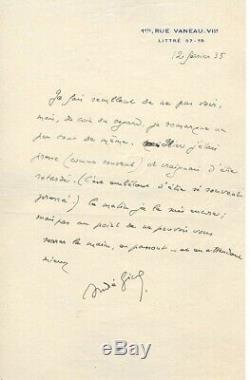 1bis, RUE VANEAU. VIIe
LITTRÉ 57-19
12 février 35
Je fais semblant de ne pas voir,
mais, du coin du regard, je remarque un
peu tout de même. j'étais
pressé (comme souvent) et craignais d'être
retardé. (C'est ennuyeux d'être si souvent
pressé!) Ce matin je le suis encore;
mais pas au point de ne pouvoir vous
serrer la main, en passant et en attendant
mieux
André Gide
ebay